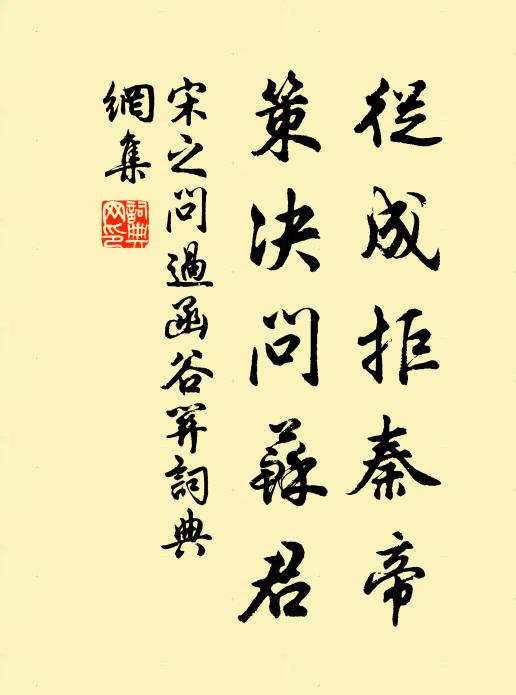 從成拒秦帝
策決問蘇君
宋之問過函谷關詞典
網集
詞典
网印